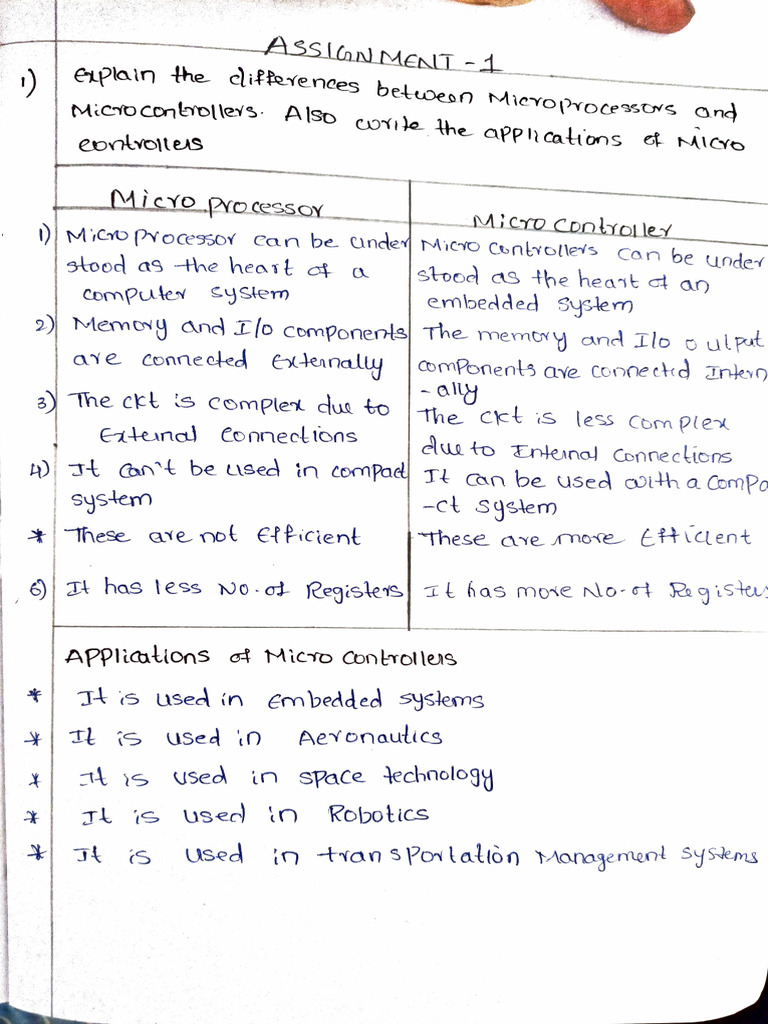 ASSIGNMENT - 1
1) Explain the differences between Microprocessors and
Microcontrollers. Also write the applications of Micro
controllers
Micro processor
1) Microprocessor can be under
stood as the heart of a
computer system
2) Memory and I/o components
are connected Externally
3) The ckt is complex due to
External connections
4) It can't be used in compact
system
* These are not Efficient
6) It has less No. of Registers
Micro controller
Micro controllers can be under
stood as the heart of an
embedded system
The memory and I/o output
components are connected Intern
-ally
The ckt is less complex
due to Internal connections
It can be used with a compa
-ct system
These are more Efficient
It has more No. of Registers
Applications of Micro controllers
* It is used in Embedded systems
* It is used in Aeronautics
* It is used in space technology
* It is used in Robotics
* It is used in transportation Management systems